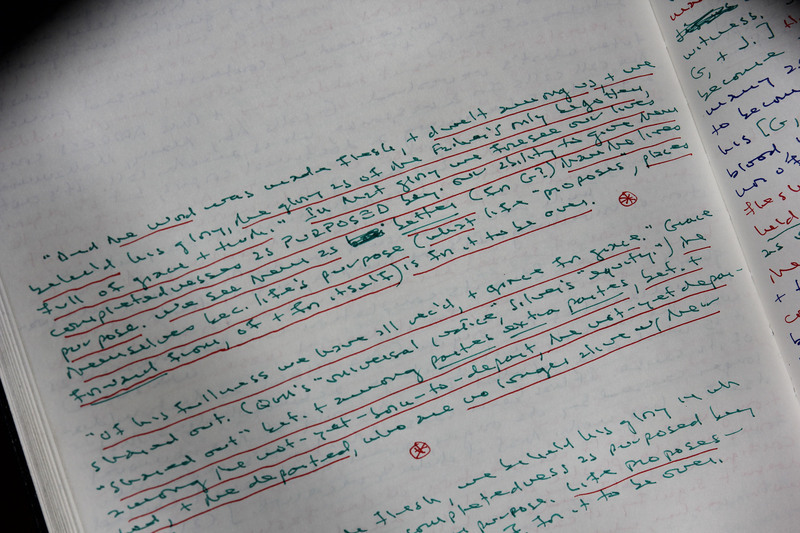 "And the word was made flesh, + dwelt among us, + we
beheld his glory, the glory as of the Father's only begotten,
full of grace + truth." In that glory we foresee our lives
completednesses as PURPOSED bec. our ability to give them
purpose. We see them as better (En G?) than the lives
themselves bec. life's purpose (what life "proposes, places
forward from, of + for itself) is for it to be over.
"Of his fullness we have all rec'd, + grace for grace." Grace
shared out. (Qoh's "universal justice," Silver's "equity.") The
"shared out" bet. + among parties extra partes, bet. +
among the not-yet-born-to-depart, the not-yet-depar-
ted, + the departed, who are no longer alive w/ the
flesh, we beheld his glory in wh
completedness as purposed bey
purpose. Life proposes—
for it to be over.
witness.
G, + J.]
become
many as
to become
his [G,
blood,
flesh
held
as